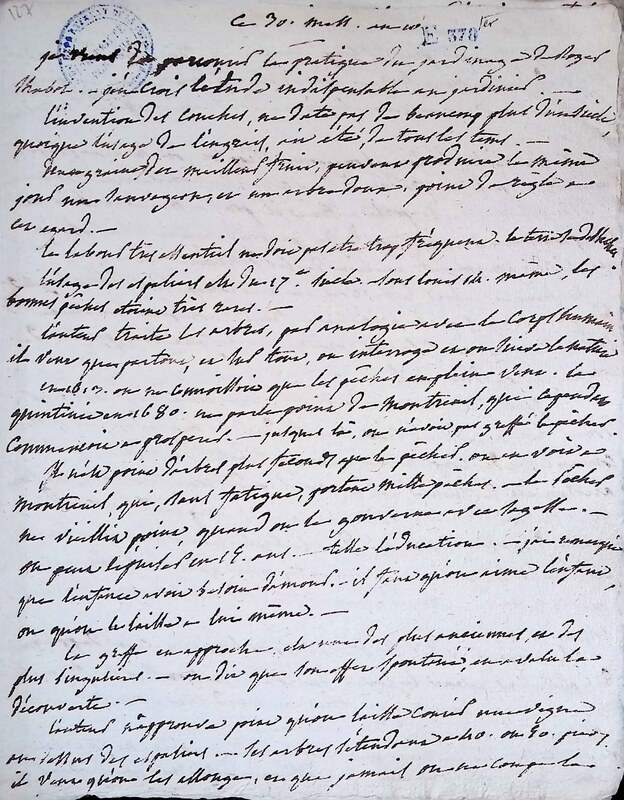 127
ce 30. mess. an
E 378 ter
je viens de parcourir la pratique du jardinage de Roger
Chabot. - j'en crois l'étude indispensable au jardinier. -
L'invention des couches, ne date pas de beaucoup plus d'un siècle,
quoique l'usage de l'engrais, ait été de tous les tems. -
une graine du meilleur fruit, peuvent produire le même
jour un sauvageon, et un arbre doux, point de règle a
cet egard. -
le labour tres essentiel ne doit pas etre trop fréquent. la terre se desseche.
l'usage des espaliers est du 17e. siecle. sous louis 14. même, les
bonnes pêches etoient très rares. -
l'auteur traite les arbres, par analogie avec le corps humain
il veut que partout, et sur tout, on interroge et on suive la nature
en 16 on ne connoissoit que les pêches en plein vent. la
quintinie en 1680. ne parle point de montreuil, qui cependant
commencoit a prosperer. - jusques là, on n'avoit pas greffé le pêcher.
Il n'est point d'arbres plus féconds que le pêcher, on en voit a
montreuil, qui, sans fatigue, portent mille pêches. - le pêcher
ne vieillit point, quand on le gouverne avec sagesse. -
on peut l'épuiser en 15. ans. - telle l'éducation. - j'ai remarqué
que l'enfance avoit besoin d'emons. - il faut qu'on aime l'enfant,
ou qu'on le laisse a lui même. -
la greffe en approche, est une des plus anciennes, et des
plus singulieres. - on dit que son effet spontané en a valu la
découverte. -
l'auteur n'approuve point qu'on laisse courir une vigne
au dessus des espaliers. - les arbres s'étendent a 40. ou 50. pieds,
il veut qu'on les allonge, et que jamais on ne coupe la